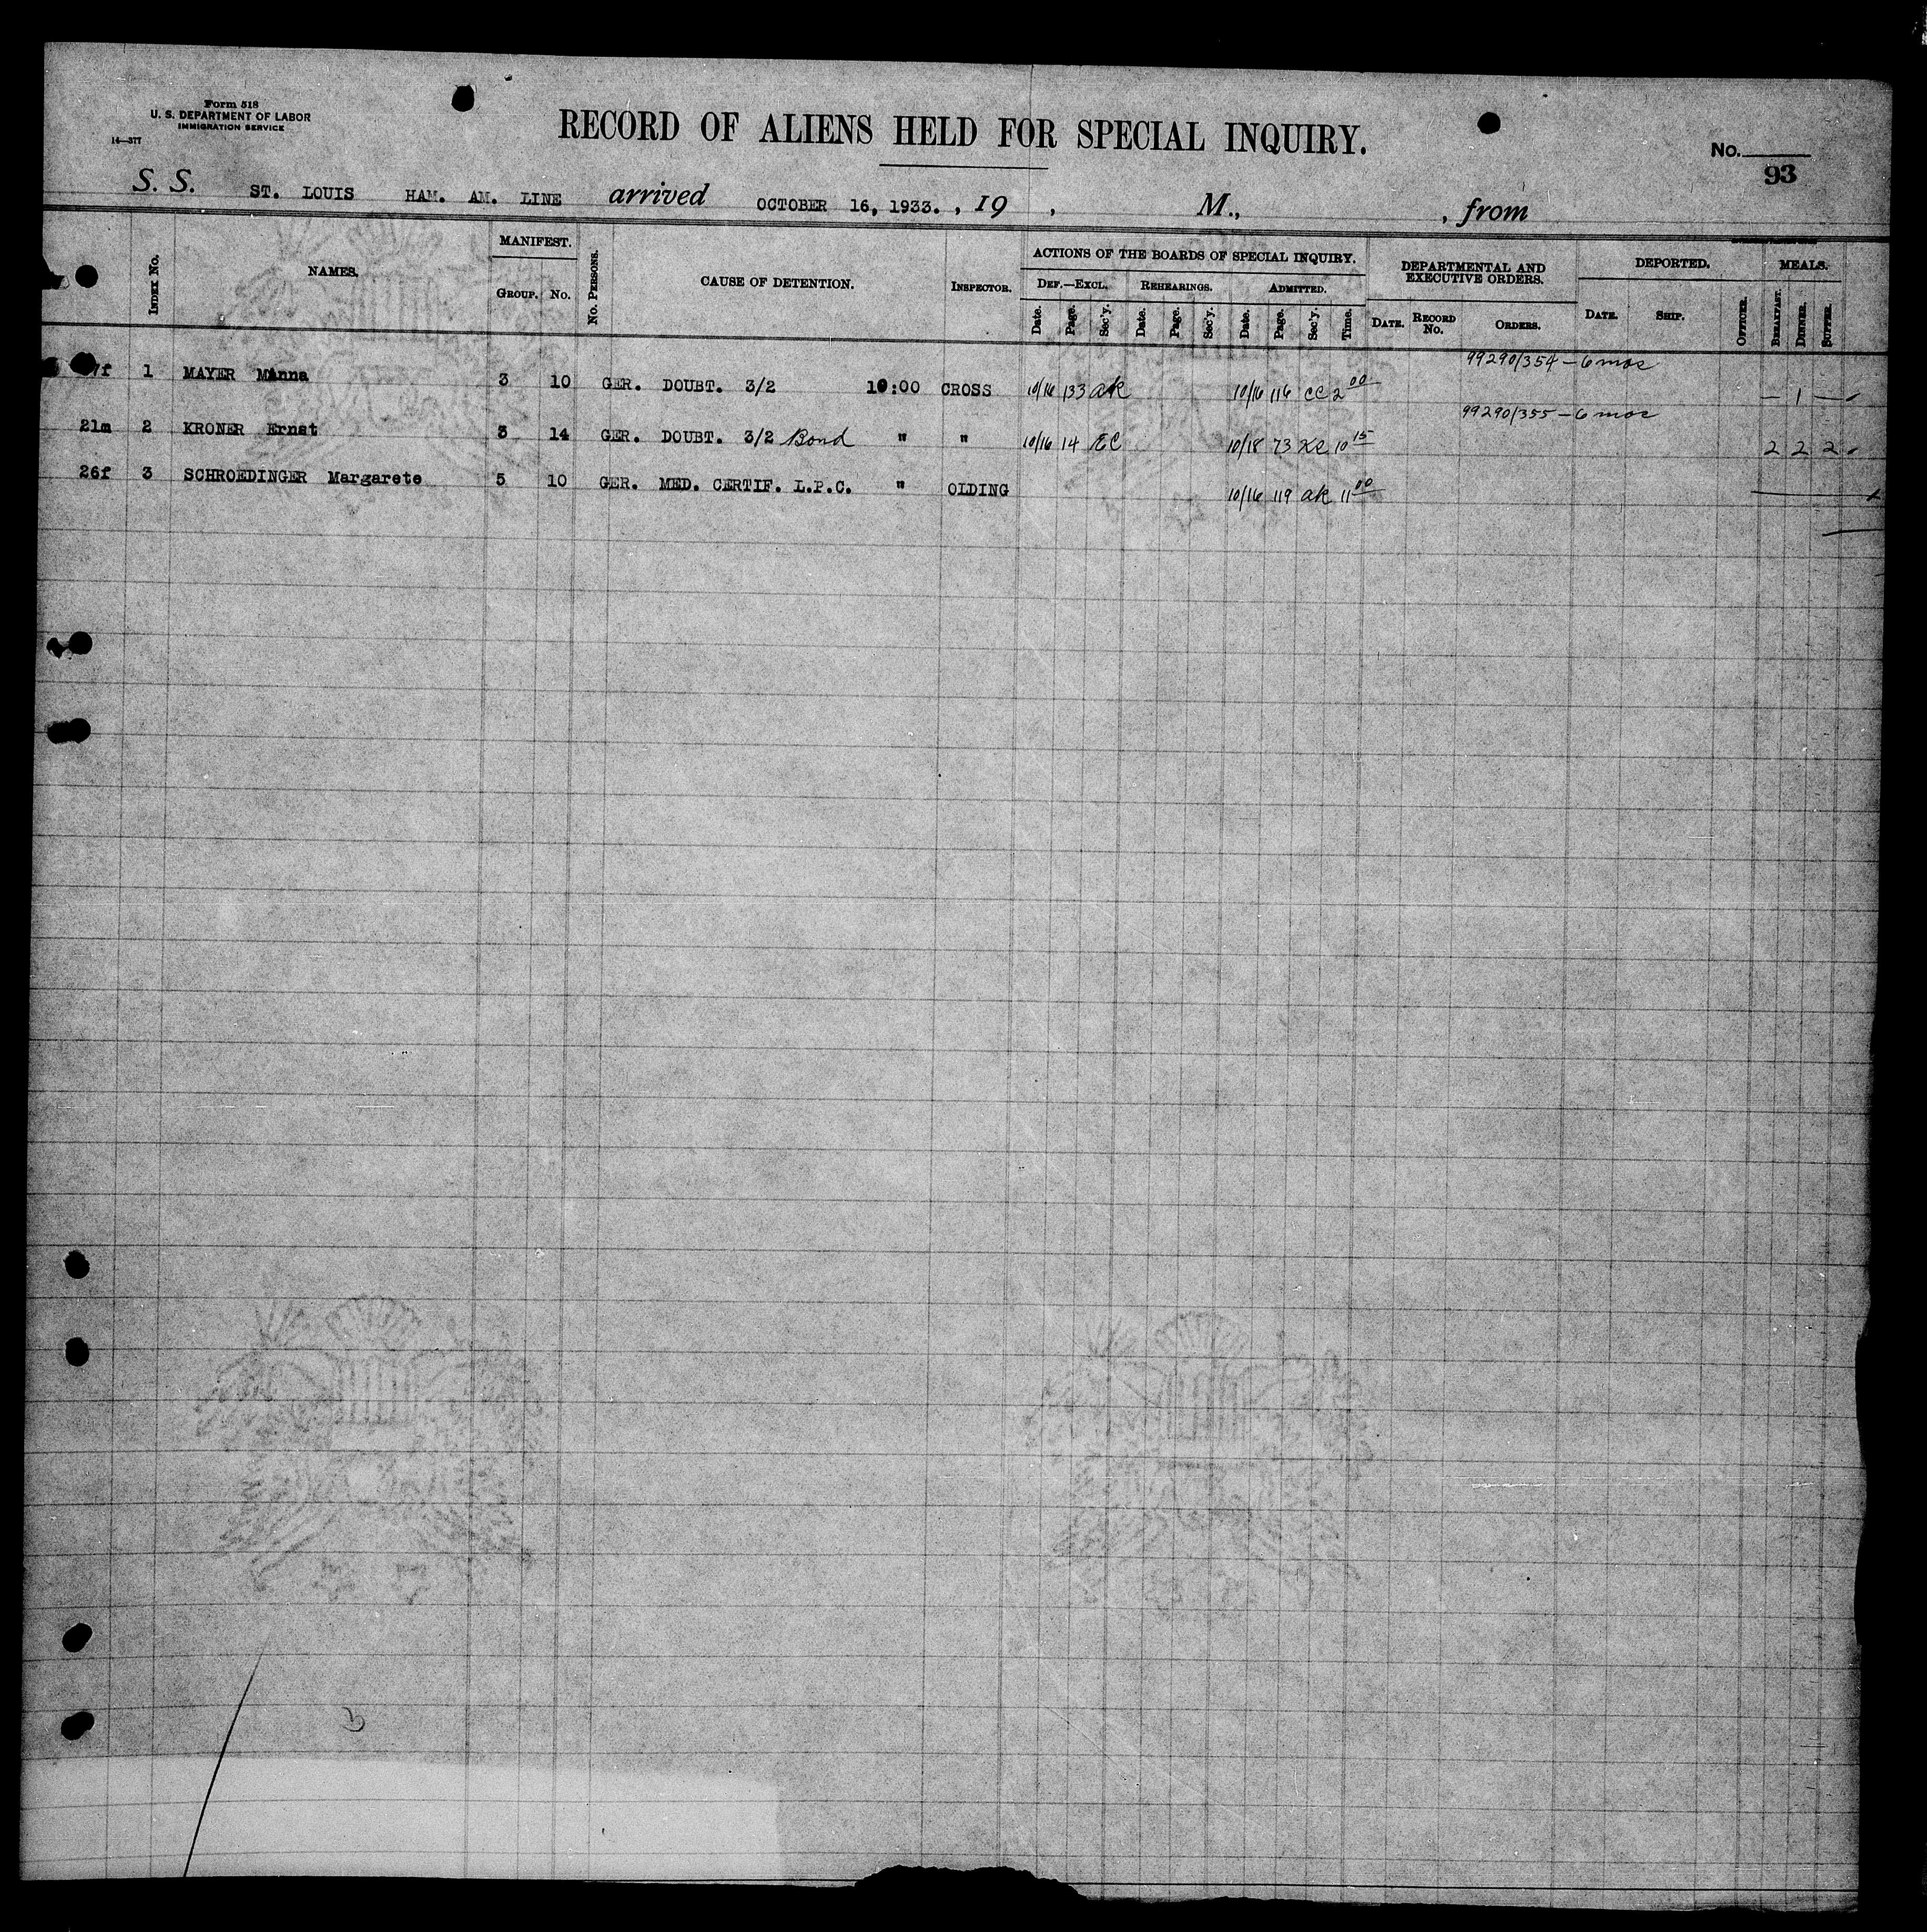 Form 518
U. S. DEPARTMENT OF LABOR
IMMIGRATION SERVICE
14—377
RECORD OF ALIENS HELD FOR SPECIAL INQUIRY.
No.
93
S. S. ST. LOUIS HAM. AM. LINE arrived OCTOBER 16, 1933. , 19 , M., , from
Index No.
NAMES.
MANIFEST.
Group. No.
No. Persons.
CAUSE OF DETENTION.
Inspector.
ACTIONS OF THE BOARDS OF SPECIAL INQUIRY.
Def.—Excl. Rehearings. Admitted.
Date. Page. Sec'y. Date. Page. Sec'y. Date. Page. Sec'y. Time.
DEPARTMENTAL AND
EXECUTIVE ORDERS.
Date. Record No. Orders.
DEPORTED.
Date. Ship. Officer.
MEALS.
Breakfast. Dinner. Supper.
99290/354 – 6 mos
7f 1 MAYER Minna 3 10 GER. DOUBT. 3/2 10:00 CROSS 10/16 133 ak 10/16 116 cc 2 00 — 1 —
99290/355 – 6 mos
21m 2 KRONER Ernst 3 14 GER. DOUBT. 3/2 Bond " " 10/16 14 EC 10/18 73 10 15 2 2 2
26f 3 SCHROEDINGER Margarete 5 10 GER. MED. CERTIF. L.P.C. " OLDING 10/16 119 ak 11 00